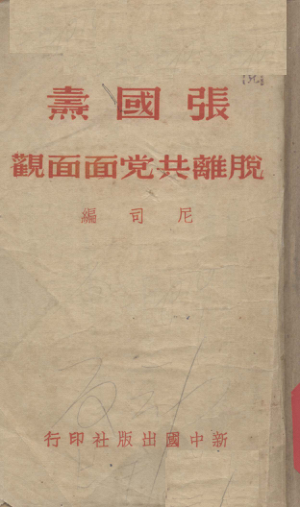 張國燾
脫離共党面面觀
尼司編
新中國出版社印行